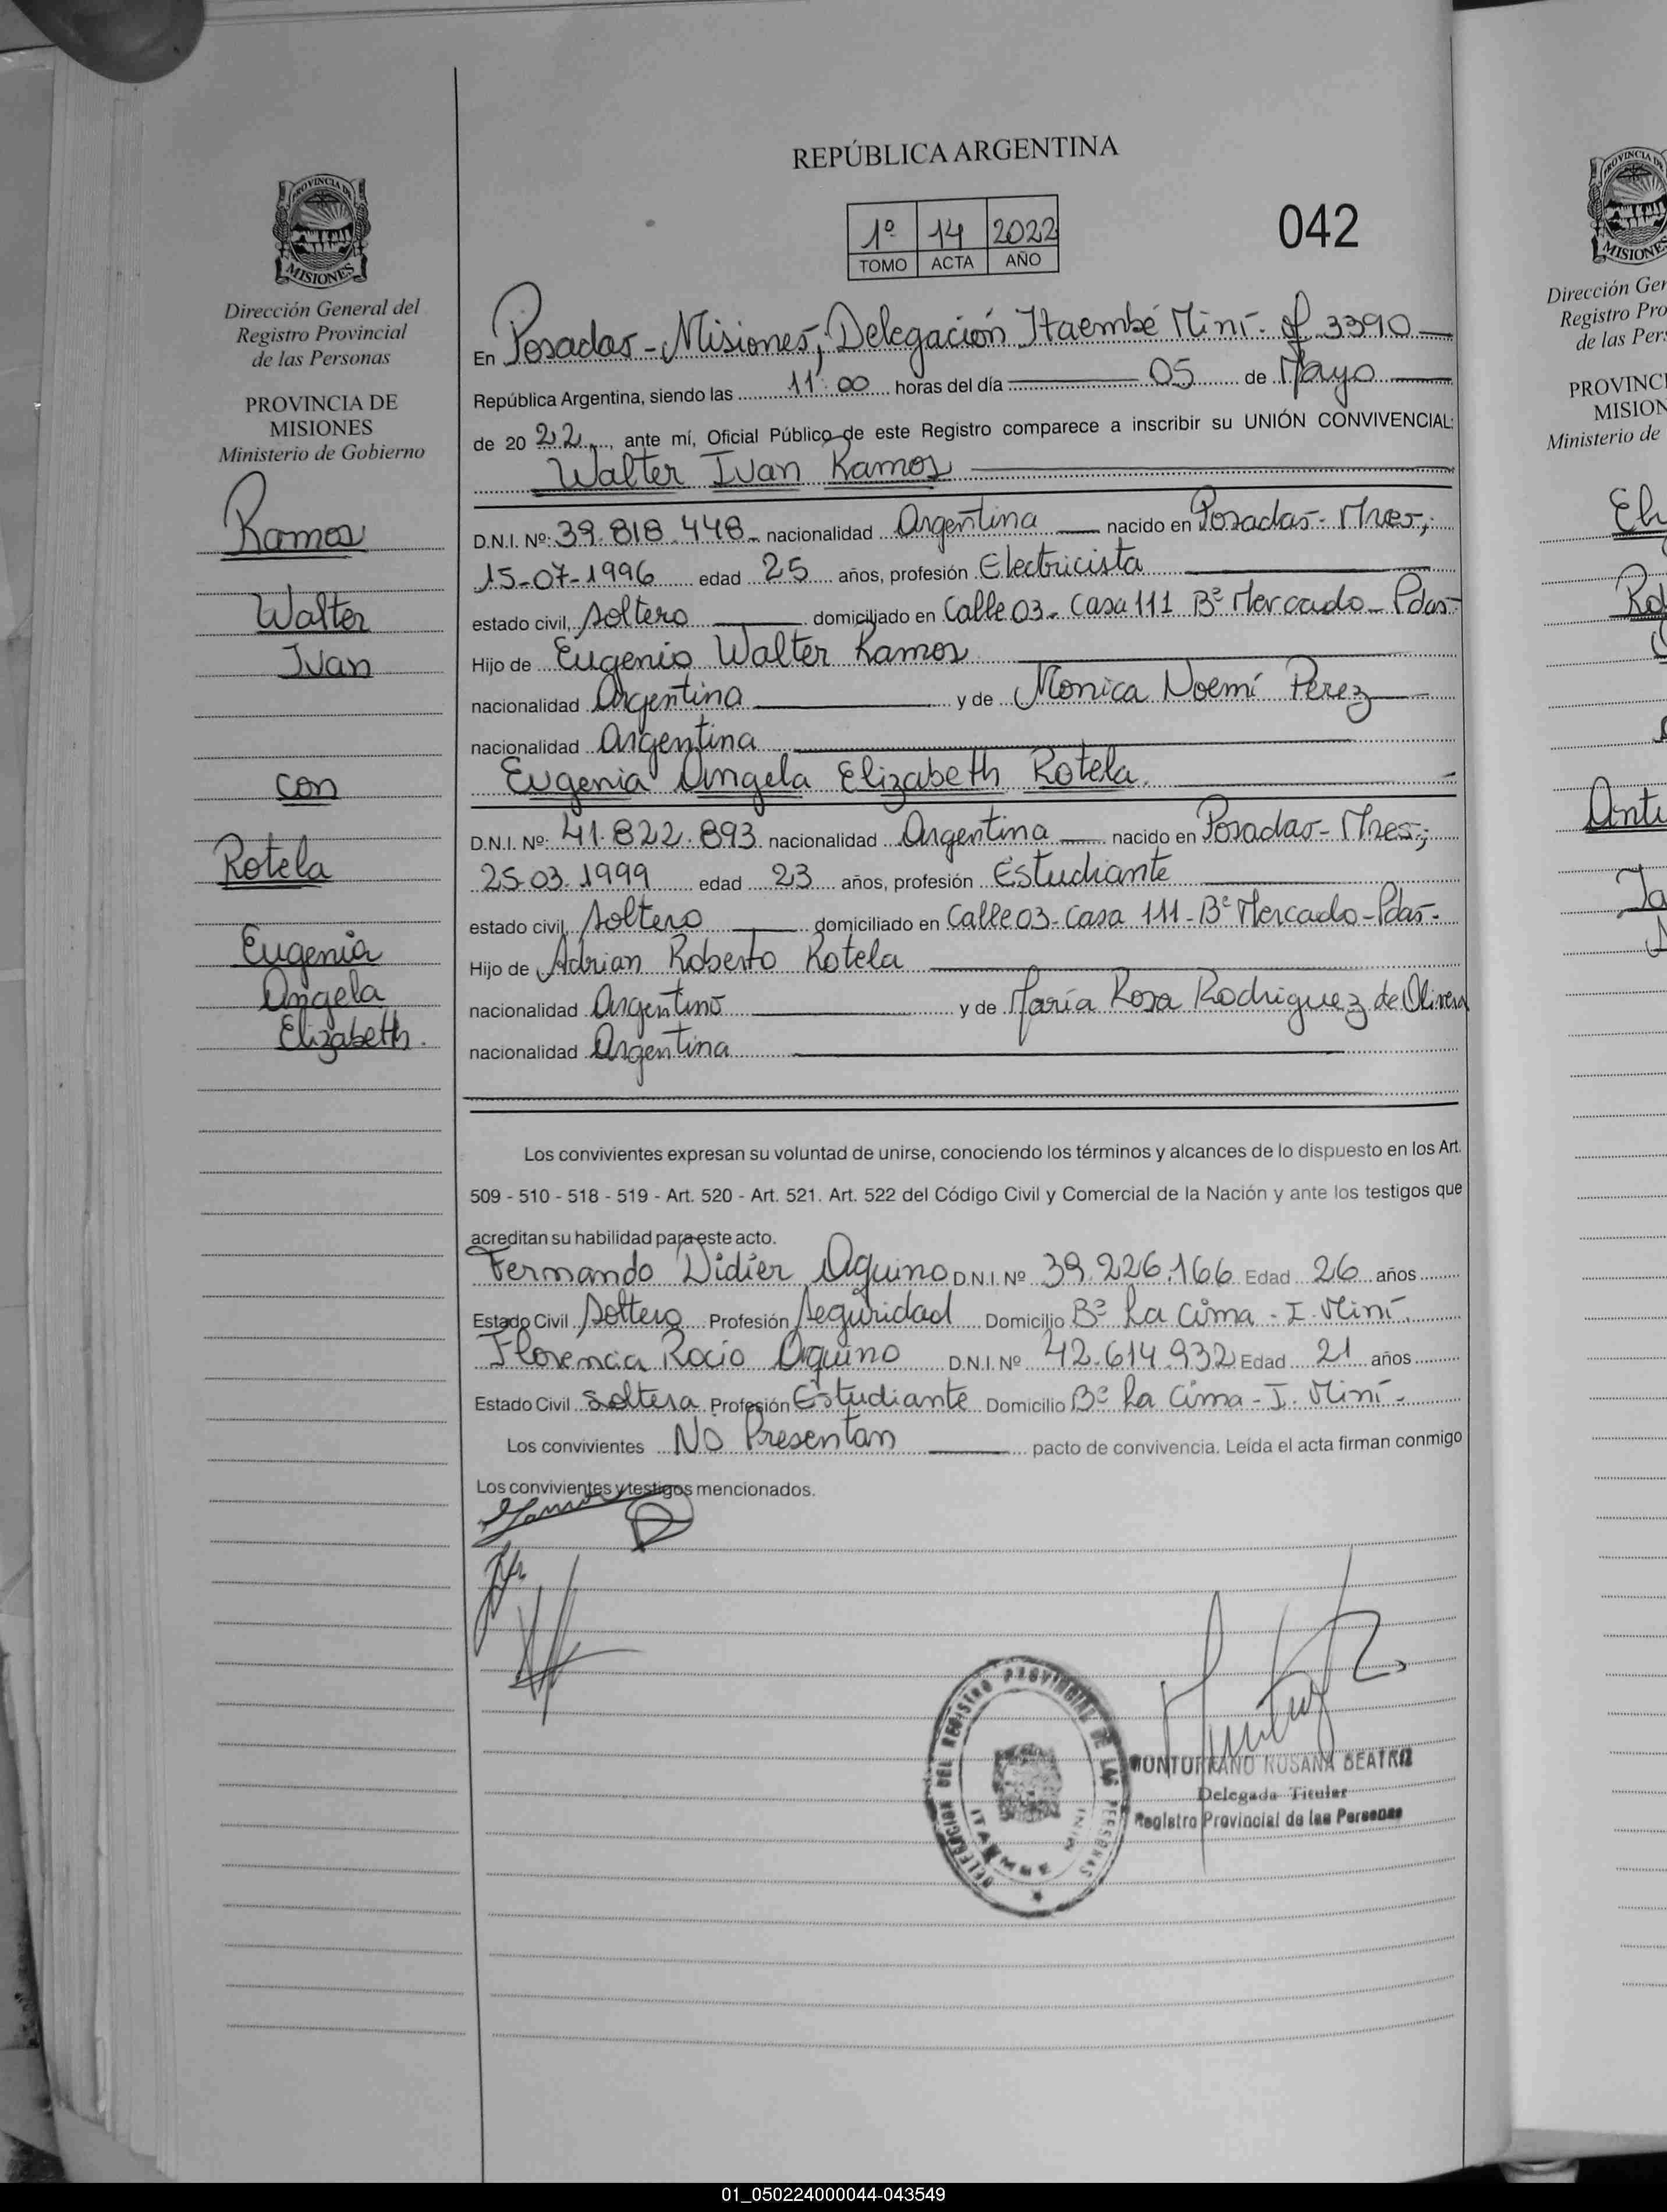 REPÚBLICA ARGENTINA
1º 14 2022
TOMO ACTA AÑO
042
PROVINCIA DE
MISIONES
Dirección General del
Registro Provincial
de las Personas
PROVINCIA DE
MISIONES
Ministerio de Gobierno
Ramos
Walter
Ivan
con
Rotela
Eugenia
Angela
Elizabeth.
En Posadas - Misiones, Delegación Itaembé Miní - of 3390
República Argentina, siendo las 11:00 horas del día 05 de Mayo
de 2022, ante mí, Oficial Público de este Registro comparece a inscribir su UNIÓN CONVIVENCIAL:
Walter Ivan Ramos
D.N.I. Nº: 39.818.448 nacionalidad Argentina nacido en Posadas - Mnes,
15-07-1996 edad 25 años, profesión Electricista
estado civil, soltero domiciliado en Calle 03 - Casa 111 Bº Mercado - Pdas-
Hijo de Eugenio Walter Ramos
nacionalidad Argentina y de Monica Noemí Perez
nacionalidad Argentina
Eugenia Angela Elizabeth Rotela.
D.N.I. Nº: 41.822.893 nacionalidad Argentina nacido en Posadas - Mnes;
25-03-1999 edad 23 años, profesión Estudiante
estado civil, soltero domiciliado en Calle 03 - Casa 111 - Bº Mercado - Pdas-
Hijo de Adrian Roberto Rotela
nacionalidad Argentino y de María Rosa Rodriguez de Olivera
nacionalidad Argentina
Los convivientes expresan su voluntad de unirse, conociendo los términos y alcances de lo dispuesto en los Art.
509 - 510 - 518 - 519 - Art. 520 - Art. 521. Art. 522 del Código Civil y Comercial de la Nación y ante los testigos que
acreditan su habilidad para este acto.
Fernando Didier Aquino D.N.I. Nº 39.226.166 Edad 26 años
Estado Civil Soltero Profesión Seguridad Domicilio Bº La Cima - I. Miní.
Florencia Rocio Aquino D.N.I. Nº 42.614.932 Edad 21 años
Estado Civil Soltera Profesión Estudiante Domicilio Bº La Cima - I. Miní -
Los convivientes No Presentan pacto de convivencia. Leída el acta firman conmigo
Los convivientes y testigos mencionados.
DELEGACION DEL REGISTRO PROVINCIAL DE LAS PERSONAS
ITAEMBE MINI
ROSANA BEATRIZ
Delegada Titular
Registro Provincial de las Personas
PROVINCIA DE
MISIONES
Dirección Gen
Registro Pro
de las Pers
PROVINCI
MISION
Ministerio de
01_050224000044-043549